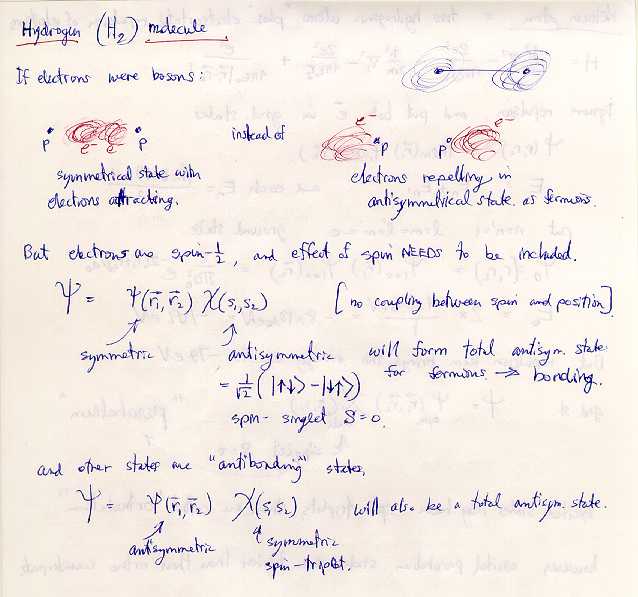 Hydrogen (H₂) molecule
If electrons were bosons:
p e⁻ e⁻ p instead of e⁻ p p e⁻
symmetrical state with
electrons attracting.
electrons repelling, in
antisymmetrical state as fermions.
But electrons are spin-1/2, and effect of spin NEEDS to be included.
Ψ = ψ(r⃗₁,r⃗₂) χ(s₁,s₂) [no coupling between spin and position]
symmetric
antisymmetric
= 1/√2 ( |↑↓> − |↓↑> )
spin-singlet S=0.
will form total antisym. state
for fermions → bonding.
and other states are "antibonding" states,
Ψ = ψ(r⃗₁,r⃗₂) χ(s₁,s₂) will also be a total antisym. state.
antisymmetric
symmetric
spin-triplet.